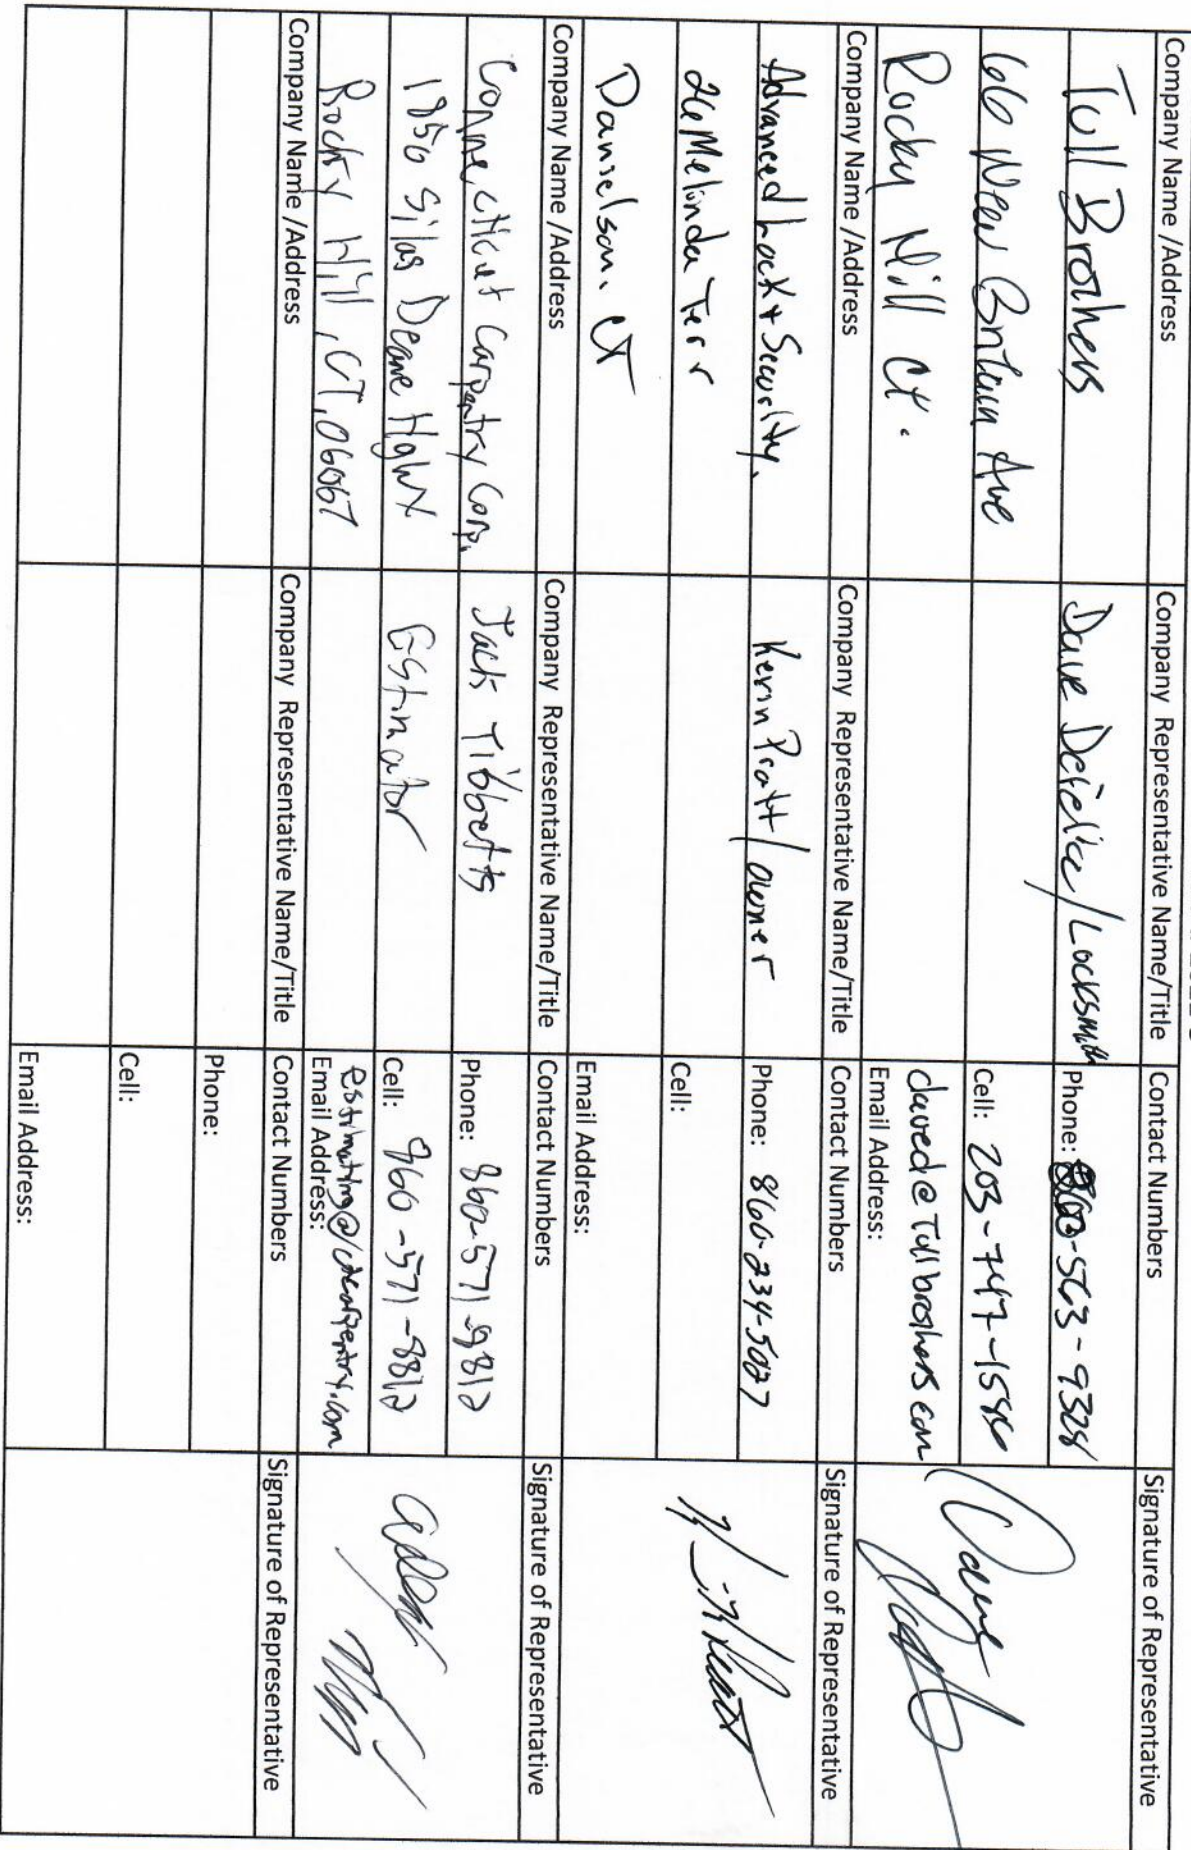 Company Name /Address Company Representative Name/Title Contact Numbers Signature of Representative
Tull Brothers Dave Deielice/Locksmith Phone: 860-563-9328
66 New Britain Ave Cell: 203-747-1586
Rocky Hill Ct. daved@Tullbrothers com
Email Address:
Company Name /Address Company Representative Name/Title Contact Numbers Signature of Representative
Advanced Lock + Security. Kevin Pratt/owner Phone: 860-234-5027
26 Melinda Terr Cell:
Danielson, CT Email Address:
Company Name /Address Company Representative Name/Title Contact Numbers Signature of Representative
Connecticut Carpentry Corp. Jack Tibbetts Phone: 860-571-9812
1850 Silas Deane Hgwy Estimator Cell: 960-571-8812
Rocky Hill, CT, 06067 Email Address:
Company Name /Address Company Representative Name/Title Contact Numbers Signature of Representative
Phone:
Cell:
Email Address: